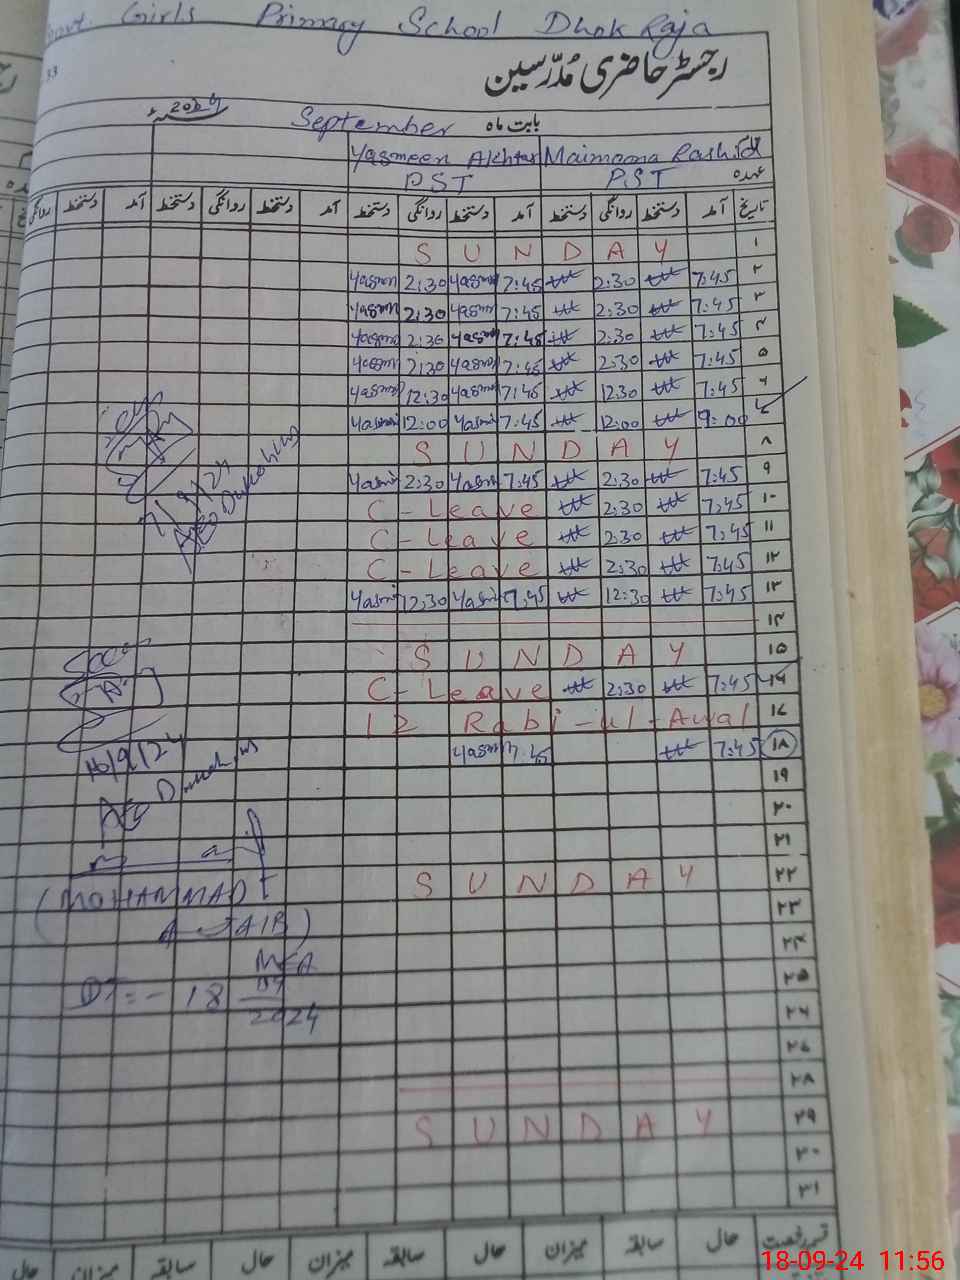 Govt Girls Primary School Dhok Raja
33
رجسٹر حاضری مُدّرسین
بابت ماہ September 2024ء
نام Maimoona Rashid Yasmeen Akhtar
عہدہ PST PST
تاریخ آمد دستخط روانگی دستخط آمد دستخط روانگی دستخط آمد دستخط روانگی دستخط آمد دستخط روانگی
۱ SUNDAY
۲ 7:45 2:30 7:45 Yasmn 2:30 Yasmn
۳ 7:45 2:30 7:45 Yasmn 2:30 Yasmn
۴ 7:45 2:30 7:45 Yasmn 2:30 Yasmn
۵ 7:45 2:30 7:45 Yasmn 2:30 Yasmn
۶ 7:45 12:30 7:45 Yasmn 12:30 Yasmn
۷ 9:00 12:00 7:45 Yasmi 12:00 Yasmn
۸ SUNDAY
۹ 7:45 2:30 7:45 Yasmi 2:30 Yasmi
۱۰ 7:45 2:30 C-Leave
۱۱ 7:45 2:30 C-Leave
۱۲ 7:45 2:30 C-Leave
۱۳ 7:45 12:30 7:45 Yasmi 12:30 Yasmi
۱۴
۱۵ SUNDAY
۱۶ 7:45 2:30 C-Leave
۱۷ 12 Rabi-ul-Awal
۱۸ 7:45 7:45 Yasmn
۱۹
۲۰
۲۱
۲۲ SUNDAY
۲۳
۲۴
۲۵
۲۶
۲۷
۲۸
۲۹ SUNDAY
۳۰
۳۱
7/9/24
AEO
16/9/24
AEO
(MOHAMMAD
AJAIB)
MEA
DT=- 18 09 2024
قسم رخصت حال سابقہ میزان حال سابقہ میزان حال سابقہ میزان حال
18-09-24 11:56